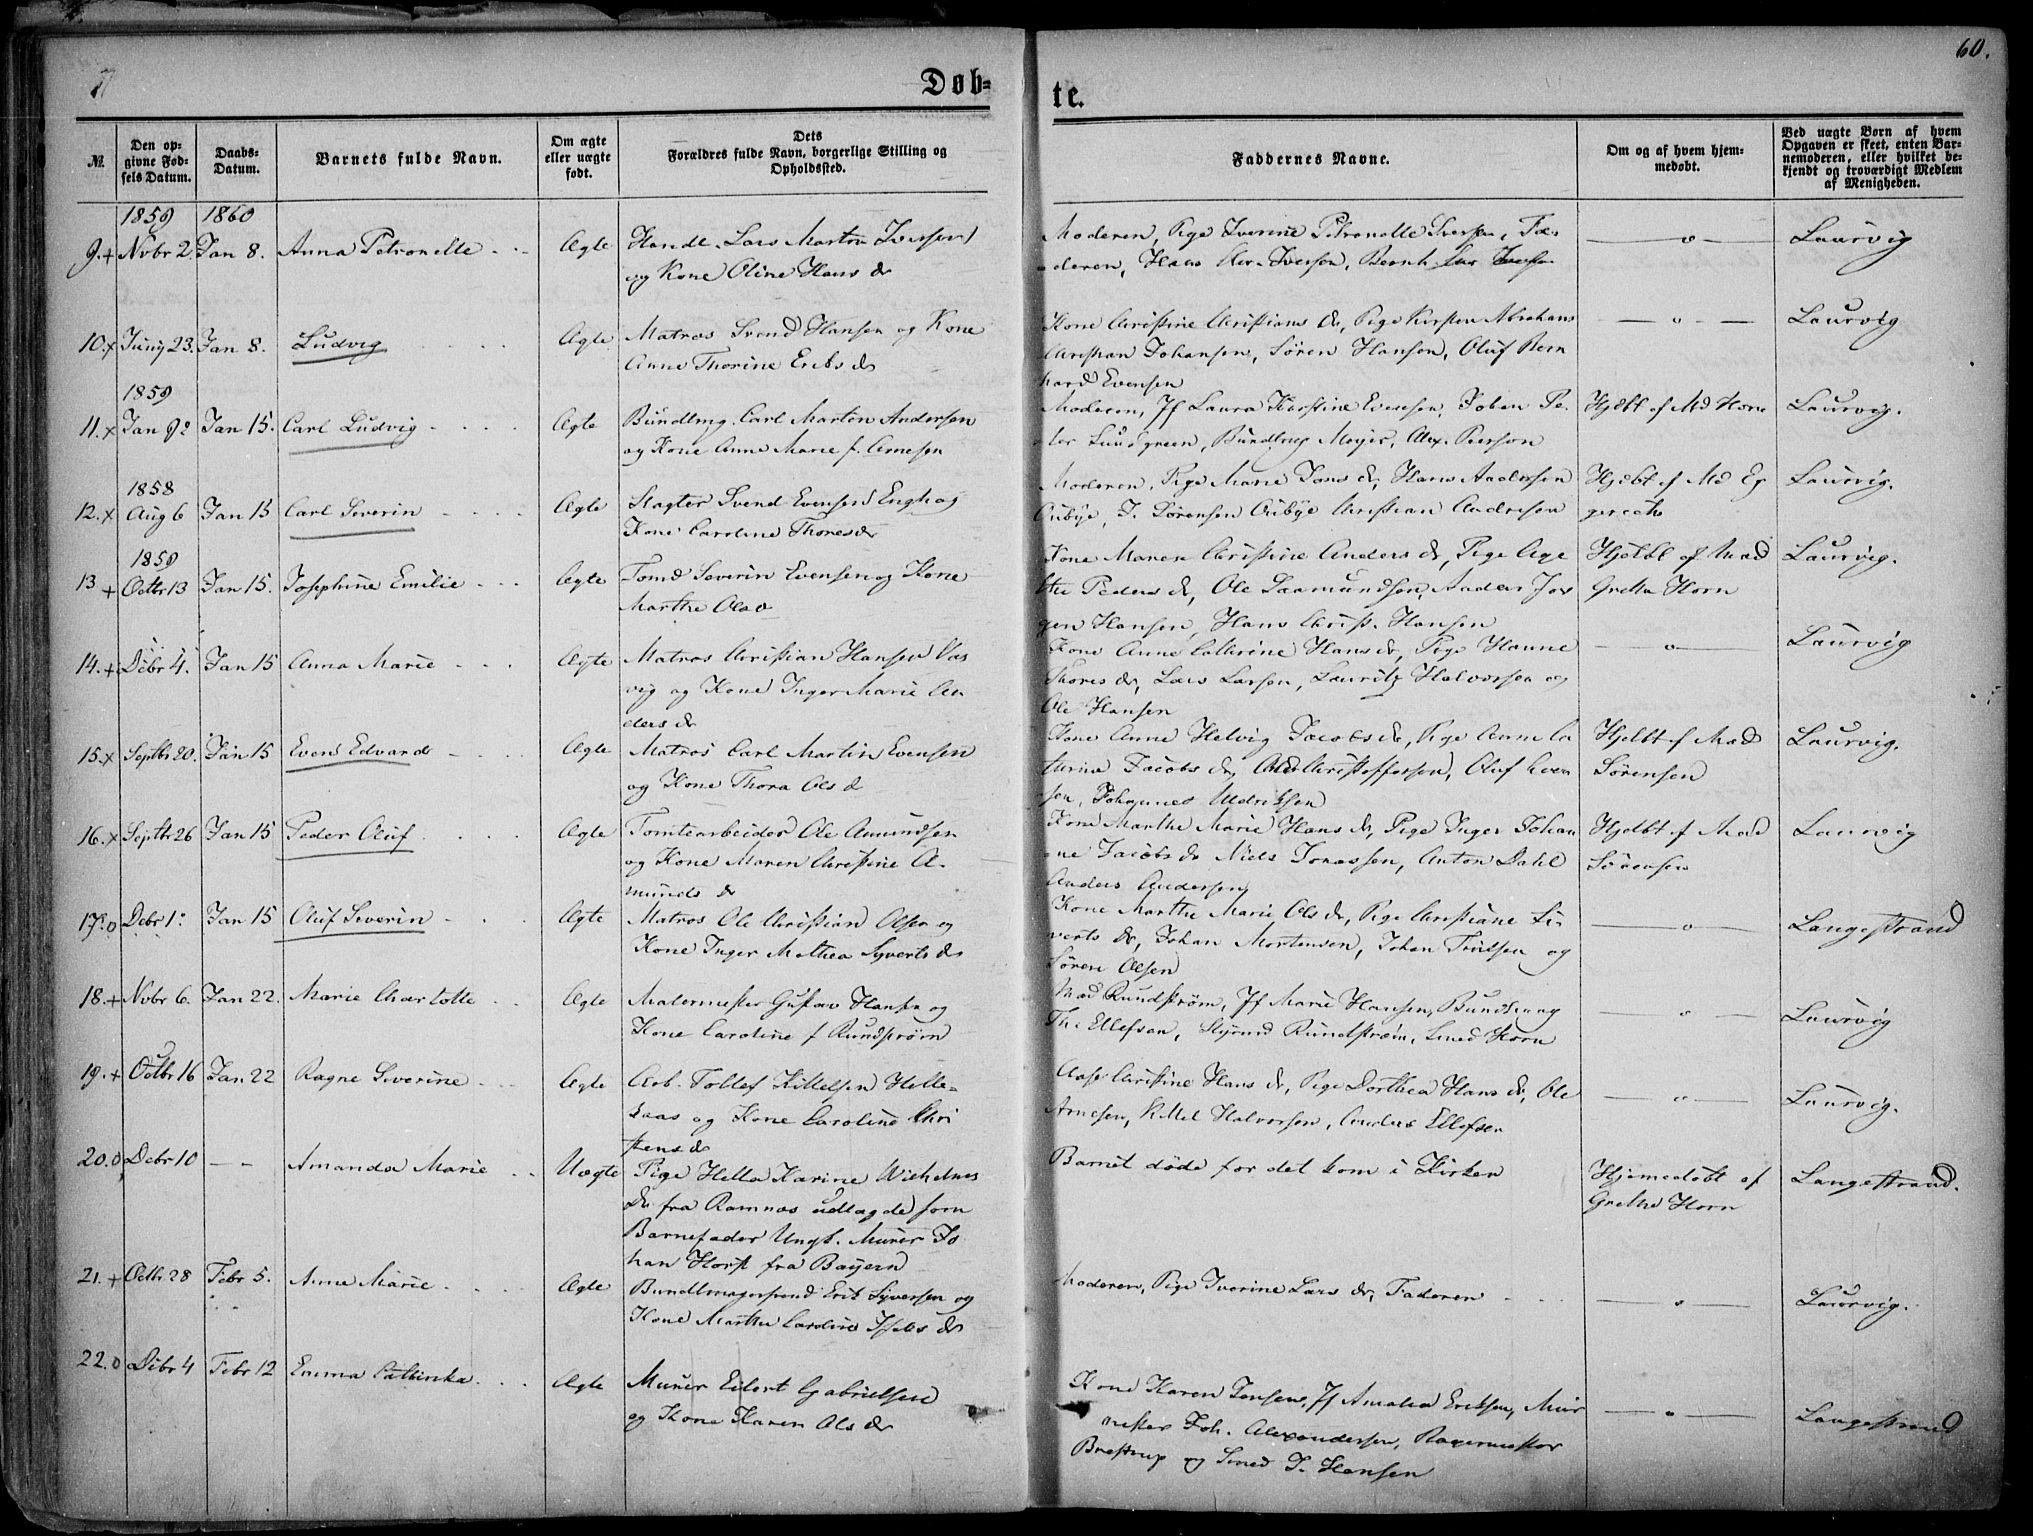 60.
Døb-
te.
№.
Den op-
givne Fød-
sels Datum.
Daabs-
Datum.
Barnets fulde Navn.
Om ægte
eller uægte
født.
Dets
Forældres fulde Navn, borgerlige Stilling og
Opholdssted.
Faddernes Navne.
Om og af hvem hjem-
medøbt.
Ved uægte Børn af hvem
Opgaven er skeet, enten Bar-
nemoderen, eller hvilket be-
kjendt og troværdigt Medlem
af Menigheden.
1859 1860
9.+ Nvbr 2. Jan 8. Anna Petronelle Ægte Handl. Lars Martin Iversen
og Kone Oline Hans dr
Moderen, Pige Iverine Petronelle Iversen, Fa-
deren, Hans Iversen, Bernh Iversen
— o — Laurvig
10.x Juny 23. Jan 8. Ludvig Ægte Matros Svend Hansen og Kone
Anne Thorine Eriks dr
Kone Christine Christians dr, Pige Kirsten Abrahams
Christian Johansen, Søren Hansen, Oluf Bern
hard Evensen
— o — Laurvig
1859
11.x Jan Jan 15. Carl Ludvig Ægte Bundtmg. Carl Martin Andersen
og Kone Anne Marie f. Arnesen
Moderen, Jf Laura Kirstine Evensen, Joken Pe-
ter Lundgreen, Bundtmg Meyer, Alex. Person
Hjdbt af Md Horn Laurvig.
1858
12.x Aug 6 Jan 15 Carl Severin Ægte Slagter Svend Evensen Engh og
Kone Caroline Thores dr
Moderen, Pige Marie Jons dr, Hans Andersen
Oubye, J. Sörensen Oubye Christian Andersen
Hjdbt af Md Eg
Laurvig.
1859
13 + Octbr 13 Jan 15. Josephine Emilie Ægte Tomd Severin Evensen og Kone
Marthe Ols
Kone Maren Christine Anders dr, Pige Age
the Peders dr, Ole Saamundsen, Anders Jør
gen Hansen, Hans Christ. Hansen
Hjdbt af Mad
Grethe Horn
Laurvig.
14.+ Debr 4. Jan 15 Anna Marie Ægte Matros Christian Hansen Vas
vig og Kone Inger Marie An
ders dr
Kone Anne Cathrine Hans dr, Pige Hanne
Thores dr, Lars Larsen, Lauritz Halvorsen og
Ole Hansen
— o — Laurvig
15.x Septbr 20. Jan 15 Even Edvard Ægte Matros Carl Martin Evensen
og Kone Thora Ols d
Kone Anne Helvig Jacobs dr, Pige Anne Ca
thrine Jacobs dr, Christoffersen, Oluf Iver
sen, Johannes Uldriksen
Hjdbt af Mad
Sörensen
Laurvig.
16.x Septbr 26 Jan 15 Peder Oluf Ægte Tomtearbeider Ole Amundsen
og Kone Maren Christine A-
munds dr
Kone Marthe Marie Hans dr, Pige Inger Johan
ne Jacobs dr Niels Jonassen, Anton Dahl
Anders Andersen
Hjdbt af Mad
Sörensen
Laurvig
17.o Debr 1. Jan 15 Oluf Severin Ægte Matros Ole Christian Olsen og
Kone Inger Mathea Syverts dr
Kone Marthe Marie Ols dr, Pige Christiane Si-
verts dr, Johan Mortensen, Johan Trulsen og
Sören Olsen
— o — Langestrand
18.+ Nvbr 6. Jan 22. Marie Charlotte Ægte Malermester Gustav Hansen og
Kone Caroline f Rundstrøm
Mad Rundstrøm, Jf Marie Hansen,
Th. Ellefsen, Styrmd Rundstrøm, Smed Horn
— o — Laurvig
19.+ Octbr 16 Jan 22 Ragne Severine Ægte Arb. Tollef Kittelsen Helle-
kaas og Kone Caroline Chri
stens dr
Aase Christine Hans dr, Pige Dorthea Hans dr, Ole
Arnesen, Kittel Halvorsen, Anders Ellefsen
— o — Laurvig.
20.o Debr 10 — Amanda Marie Uægte Pige Hella Karine Wilhelms
Dr fra Ramnæs udlagde som
Barnefader Ungk. Murer Jo
han Horst fra Bayern
Barnet døde før det kom i Kirken
Hjemedøbt af
Grethe Horn
Langestrand.
21.+ Octbr 28 Febr 5. Anne Marie Ægte Bundtmagersvend Erik Syversen og
Kone Marthe Caroline dr
Moderen, Pige Iverine Lars dr, Faderen
— o — Laurvig.
22.o Debr 4 Febr 12 Emma Ægte Murer Eilert Gabrielsen
og Kone Karen Ols dr
Kone Karen Jensen, Jf Amalia Eriksen, Mur
mester Joh. Alexandersen, Ragermester
Brostrup og Smed J. Hansen
— o — Langestrand